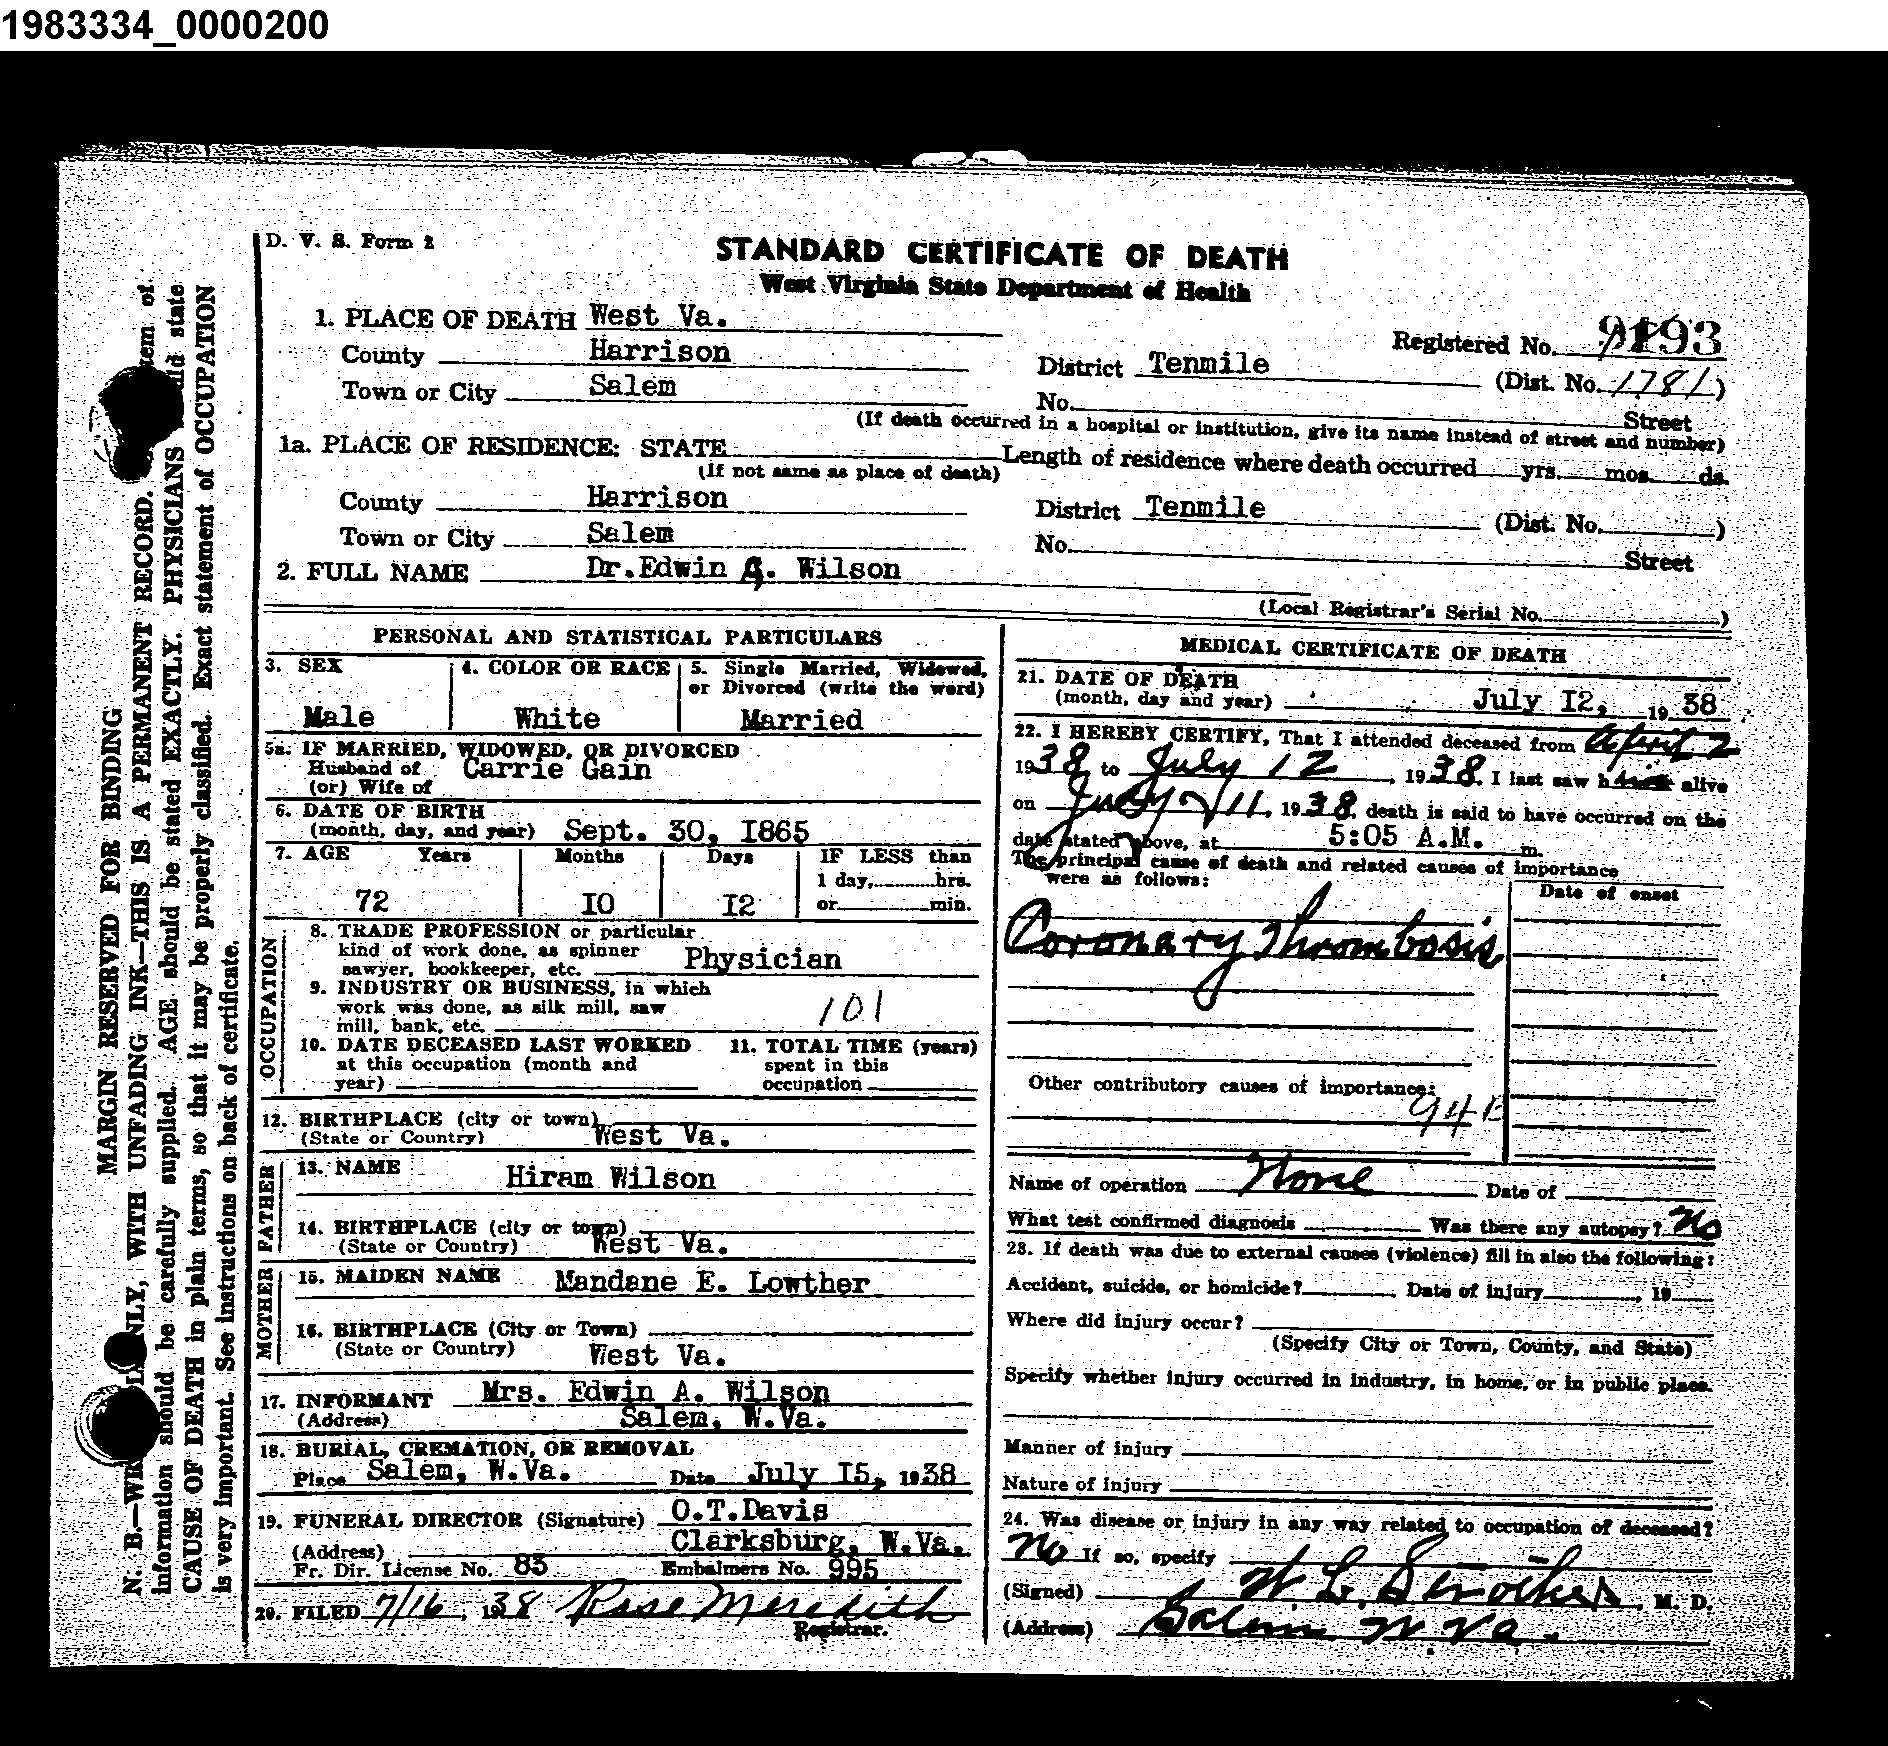 1983334_0000200
D. V. S. Form 2
STANDARD CERTIFICATE OF DEATH
West Virginia State Department of Health
1. PLACE OF DEATH West Va.
Registered No. 9193
County Harrison
District Tenmile (Dist. No. 1781)
Town or City Salem
No. Street
(If death occurred in a hospital or institution, give its name instead of street and number)
1a. PLACE OF RESIDENCE: STATE
(If not same as place of death)
Length of residence where death occurred yrs. mos. ds.
County Harrison
District Tenmile (Dist. No. )
Town or City Salem
No. Street
2. FULL NAME Dr.Edwin A. Wilson
(Local Registrar's Serial No. )
PERSONAL AND STATISTICAL PARTICULARS
3. SEX
Male
4. COLOR OR RACE
White
5. Single Married, Widowed, or Divorced (write the word)
Married
5a. IF MARRIED, WIDOWED, OR DIVORCED
Husband of Carrie Gain
(or) Wife of
6. DATE OF BIRTH
(month, day, and year) Sept. 30, I865
7. AGE Years Months Days IF LESS than
1 day, hrs.
72 I0 I2 or min.
OCCUPATION
8. TRADE PROFESSION or particular
kind of work done, as spinner
sawyer, bookkeeper, etc. Physician
9. INDUSTRY OR BUSINESS, in which
work was done, as silk mill, saw
mill, bank, etc. 101
10. DATE DECEASED LAST WORKED
at this occupation (month and
year)
11. TOTAL TIME (years)
spent in this
occupation
12. BIRTHPLACE (city or town)
(State or Country) West Va.
FATHER
13. NAME Hiram Wilson
14. BIRTHPLACE (city or town)
(State or Country) West Va.
MOTHER
15. MAIDEN NAME Mandane E. Lowther
16. BIRTHPLACE (City or Town)
(State or Country) West Va.
17. INFORMANT Mrs. Edwin A. Wilson
(Address) Salem, W.Va.
18. BURIAL, CREMATION, OR REMOVAL
Place Salem, W.Va. Date July I5, 1938
19. FUNERAL DIRECTOR (Signature) O.T.Davis
(Address) Clarksburg, W.Va.
Fr. Dir. License No. 83 Embalmers No. 995
20. FILED 7/16, 1938 Rose Meredith
Registrar.
MEDICAL CERTIFICATE OF DEATH
21. DATE OF DEATH
(month, day and year) July I2, 19 38
22. I HEREBY CERTIFY, That I attended deceased from April 2
1938, to July 12, 1938. I last saw him alive
on July 11, 1938, death is said to have occurred on the
date stated above, at 5:05 A.M. m.
The principal cause of death and related causes of importance
were as follows:
Date of onset
Coronary Thrombosis
Other contributory causes of importance:
94B
Name of operation None Date of
What test confirmed diagnosis Was there any autopsy? No
23. If death was due to external causes (violence) fill in also the following:
Accident, suicide, or homicide? Date of injury , 19
Where did injury occur?
(Specify City or Town, County, and State)
Specify whether injury occurred in industry, in home, or in public place.
Manner of injury
Nature of injury
24. Was disease or injury in any way related to occupation of deceased?
No If so, specify
(Signed) W. L. Strother, M. D.
(Address) Salem W. Va.
MARGIN RESERVED FOR BINDING
N. B.—WITH UNFADING INK—THIS IS A PERMANENT RECORD. item of
information should be carefully supplied. AGE should be stated EXACTLY. PHYSICIANS state
CAUSE OF DEATH in plain terms, so that it may be properly classified. Exact statement of OCCUPATION
is very important. See instructions on back of certificate.